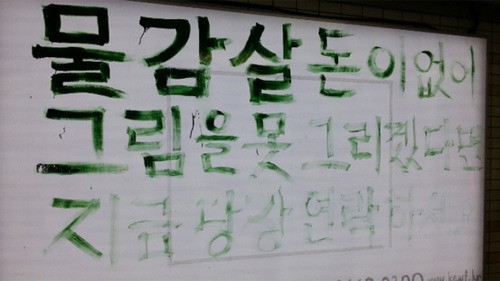 물감살돈이없어
그림을못 그리겠다면
지금 당장 연락